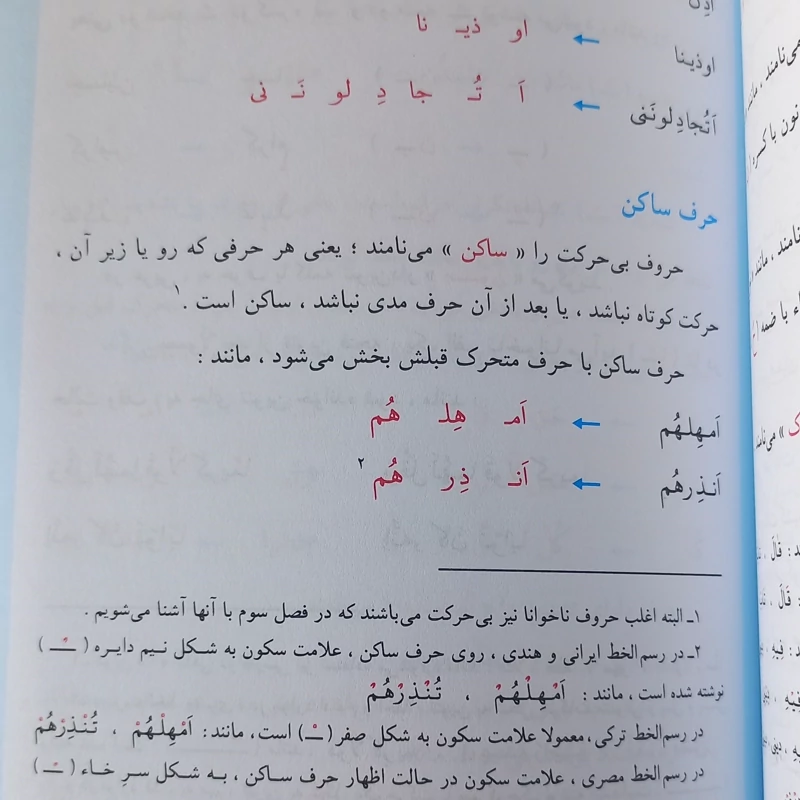 اوذینا ← او ذیـ نا
اَتُجادِلونَنی ← اَ تُـ جا دِ لو نَـ نی
حرف ساکن
حروف بی‌حرکت را « ساکن » می‌نامند ؛ یعنی هر حرفی که رو یا زیر آن ،
حرکت کوتاه نباشد ، یا بعد از آن حرف مدی نباشد ، ساکن است .۱
حرف ساکن با حرف متحرک قبلش بخش می‌شود ، مانند :
اَمهِلهُم ← اَمـ هِلـ هُم
اَنذِرهُم ← اَنـ ذِر هُم ۲
۱ـ البته اغلب حروف ناخوانا نیز بی‌حرکت می‌باشند که در فصل سوم با آنها آشنا می‌شویم .
۲ـ در رسم‌الخط ایرانی و هندی ، روی حرف ساکن ، علامت سکون به شکل نیم دایره ( ــْـ )
نوشته شده است ، مانند : اَمْهِلْهُمْ ، تُنْذِرْهُمْ
در رسم‌الخط ترکی، معمولا علامت سکون به شکل صفر (ــْـ) است، مانند: اَمْهِلْهُمْ ، تُنْذِرْهُمْ
در رسم‌الخط مصری ، علامت سکون در حالت اظهار حرف ساکن ، به شکل سرِ خاء ( ــۡـ )